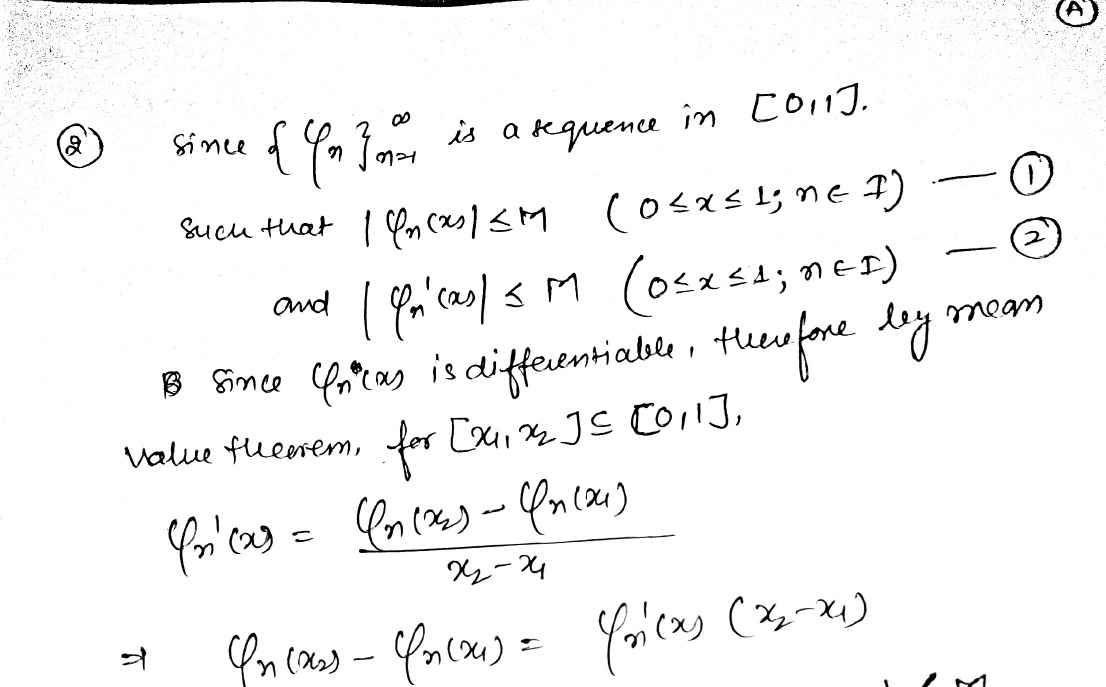 (A)
(2) since {φn}∞n=1 is a sequence in [0,1].
such that |φn(x)| ≤ M (0≤x≤1; n∈I) — (1)
and |φn'(x)| ≤ M (0≤x≤1; n∈I) — (2)
Since φn(x) is differentiable, therefore by mean
value theorem, for [x1, x2] ⊆ [0,1],
φn'(x) = φn(x2) - φn(x1)
x2 - x1
⇒ φn(x2) - φn(x1) = φn'(x) (x2-x1)